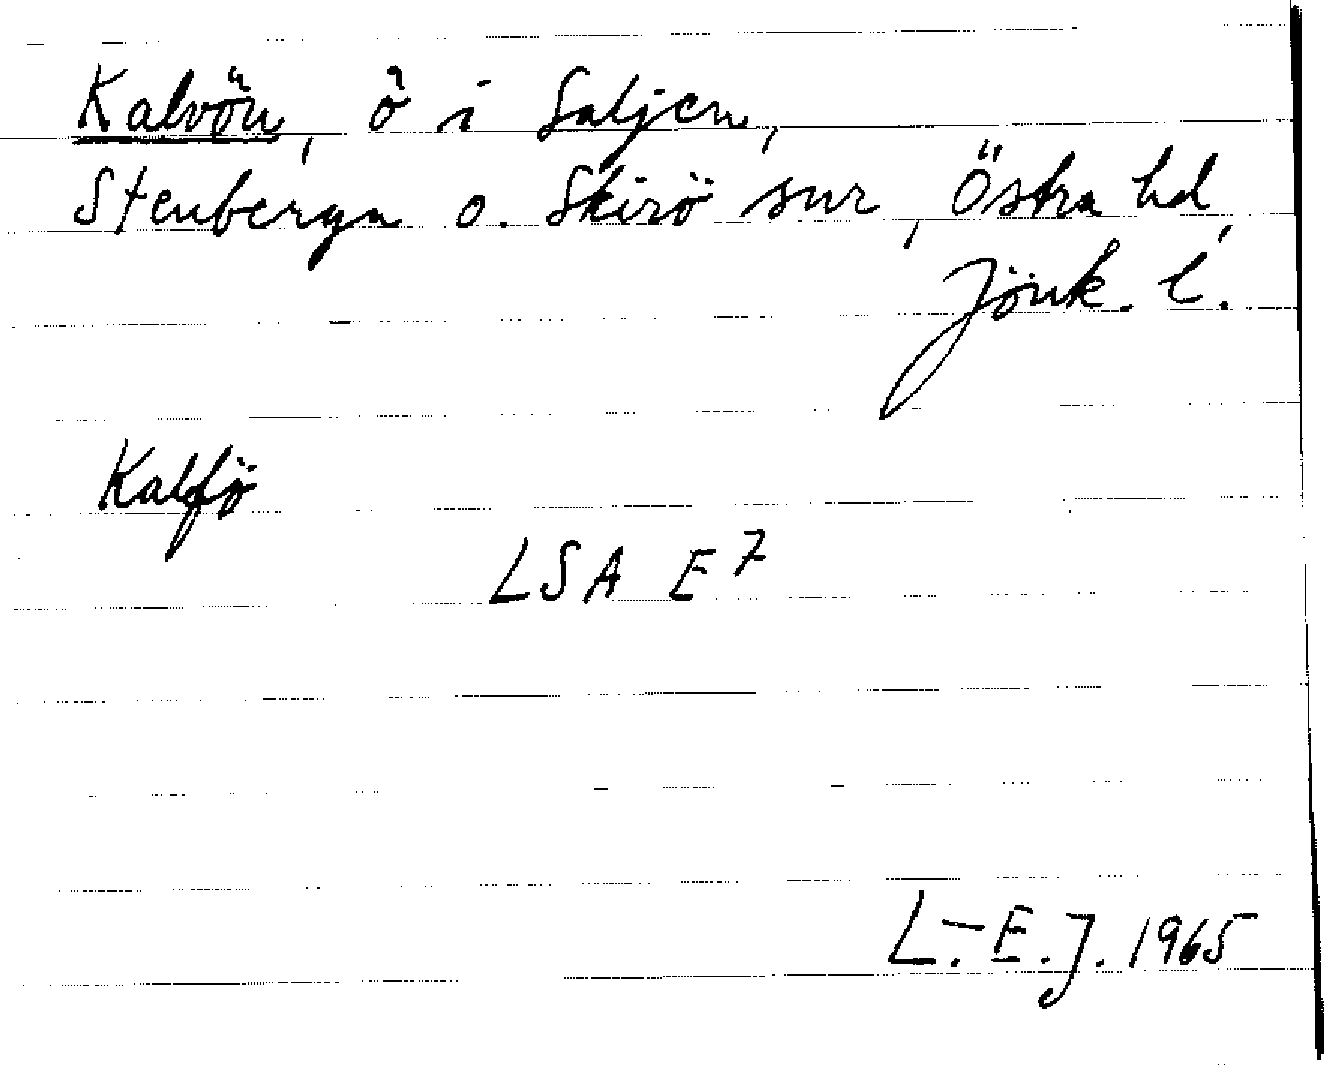 Kalvön, ö i Saljen,
Stenberga o. Skirö snr, Östra hd,
Jönk. l.
Kalfö
LSA E7
L.-E.J. 1965